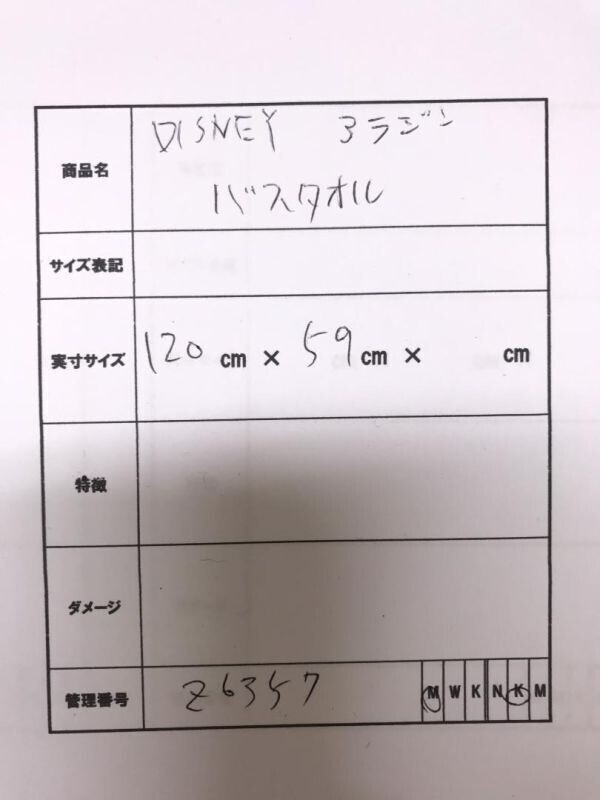 商品名 DISNEY アラジン
バスタオル
サイズ表記
実寸サイズ 120 cm × 59 cm × cm
特徴
ダメージ
管理番号 Z6357 M W K N K M